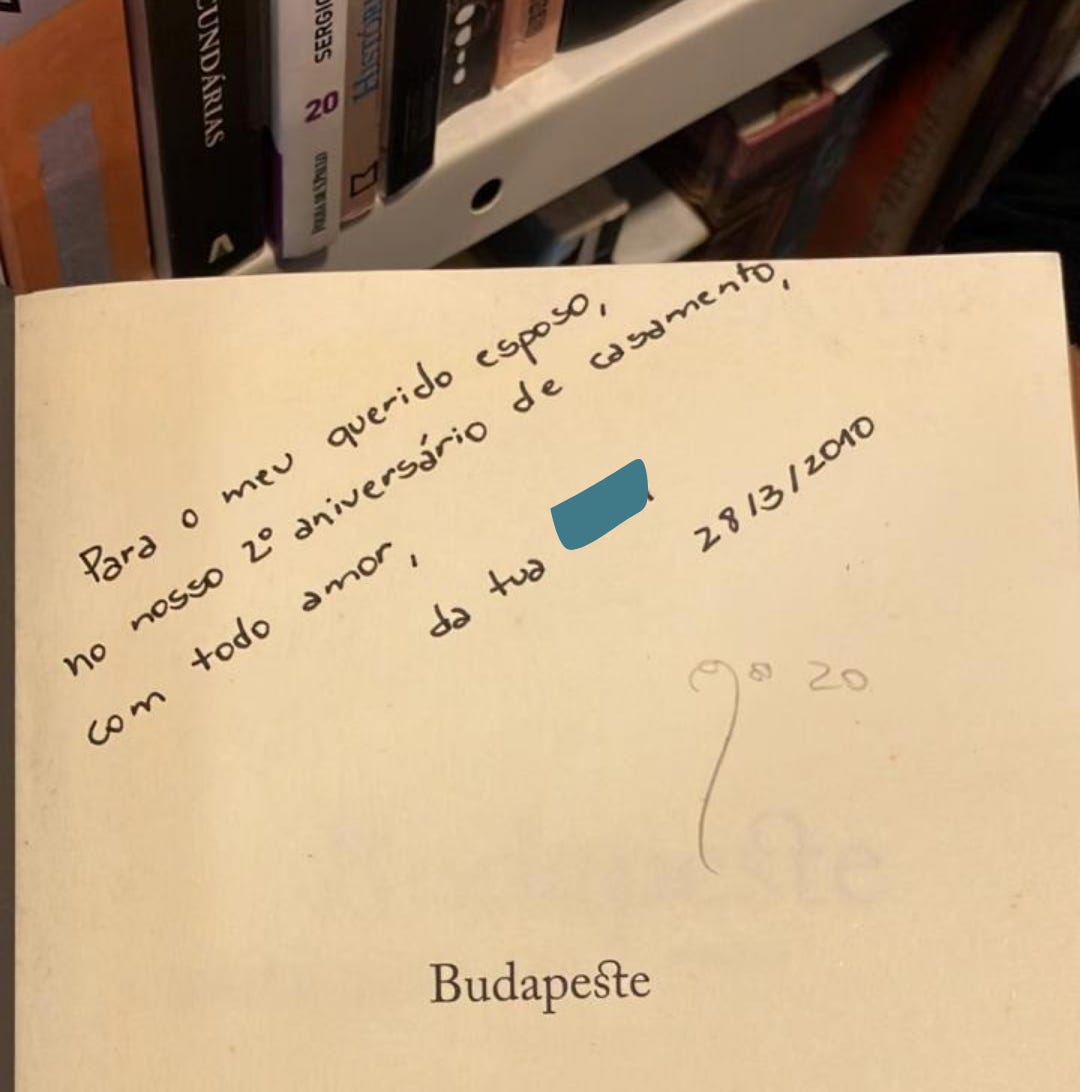 CUNDÁRIAS
SERGIO
20
PARA DE
HISTÓRI
Para o meu querido esposo,
no nosso 2º aniversário de casamento,
com todo amor,
da tua
28/3/2010
20
Budapeste